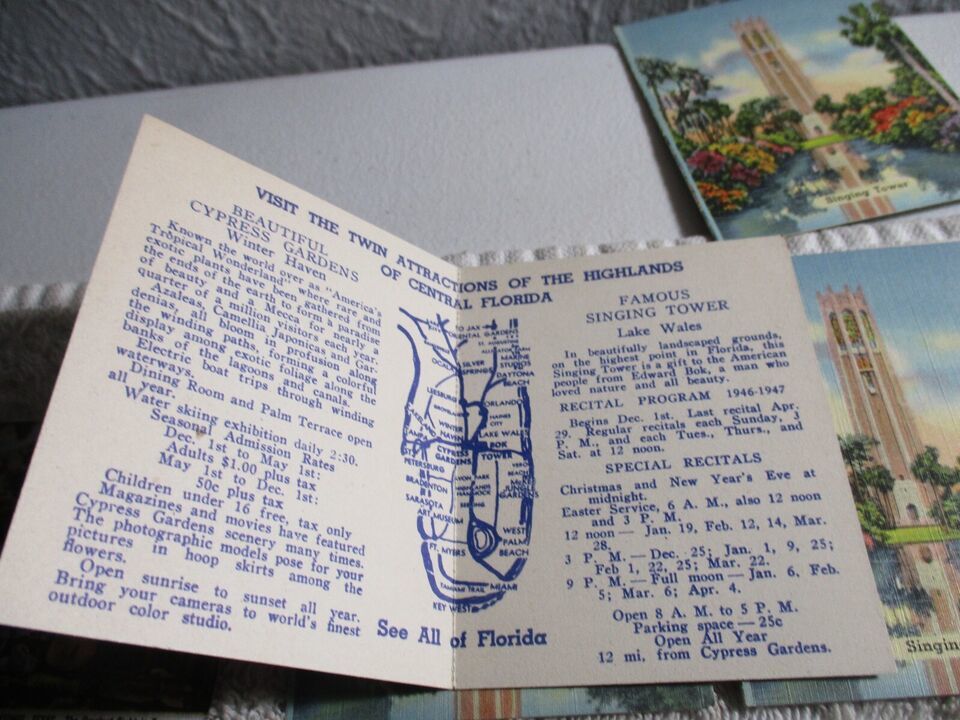 VISIT THE TWIN ATTRACTIONS OF THE HIGHLANDS
OF CENTRAL FLORIDA
BEAUTIFUL
CYPRESS GARDENS
Winter Haven
Known the world over as "America's
Tropical Wonderland" where rare and
exotic plants have been gathered from
the ends of the earth to form a paradise
of beauty and a Mecca for nearly a
quarter of a million visitors each year.
Azaleas, Camellia Japonicas and Gar-
denias, all bloom in profusion along
the winding paths, forming a colorful
display among exotic foliage along the
banks of the lagoons and canals.
Electric boat trips through winding
waterways.
Dining Room and Palm Terrace open
all year.
Water skiing exhibition daily 2:30.
Seasonal Admission Rates
Dec. 1st to May 1st:
Adults $1.00 plus tax
May 1st to Dec. 1st:
50c plus tax
Children under 16 free, tax only
Magazines and movies have featured
Cypress Gardens scenery many times.
The photographic models pose for your
pictures in hoop skirts among the
flowers.
Open sunrise to sunset all year.
Bring your cameras to world's finest
outdoor color studio.
TO JAX
ST. AUGUSTINE
SILVER
SPRINGS
MARINE
STUDIOS
DAYTONA
BEACH
LEESBURG
ORLANDO
WINTER
HAVEN
HAINES
CITY
LAKE WALES
CYPRESS
GARDENS
BOK
TOWER
ST.
PETERSBURG
BRADENTON
SARASOTA
ART MUSEUM
AVON PARK
HIGHLANDS
HAMMOCK
SEBRING
VERO
BEACH
McKEE
GARDENS
WEST
PALM
BEACH
FT. MYERS
TAMIAMI TRAIL
MIAMI
KEY WEST
See All of Florida
FAMOUS
SINGING TOWER
Lake Wales
In beautifully landscaped grounds,
on the highest point in Florida, this
Singing Tower is a gift to the American
people from Edward Bok, a man who
loved nature and all beauty.
RECITAL PROGRAM 1946-1947
Begins Dec. 1st. Last recital Apr.
29. Regular recitals each Sunday, 3
P. M., and each Tues., Thurs., and
Sat. at 12 noon.
SPECIAL RECITALS
Christmas and New Year's Eve at
midnight.
Easter Service, 6 A. M., also 12 noon
and 3 P. M.
12 noon — Jan. 19, Feb. 12, 14, Mar.
28.
3 P. M. — Dec. 25; Jan. 1, 9, 25;
Feb 1, 22, 25; Mar. 22.
9 P. M. — Full moon — Jan. 6, Feb.
5; Mar. 6; Apr. 4.
Open 8 A. M. to 5 P. M.
Parking space — 25c
Open All Year
12 mi. from Cypress Gardens.
Singing Tower
Singing